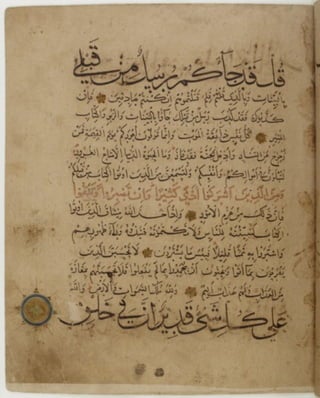 قل قد جاءكم رسل من قبلي
بالبينات وبالذي قلتم فلم قتلتموهم إن كنتم صادقين فإن
كذبوك فقد كذب رسل من قبلك جاؤا بالبينات والزبر والكتاب
المنير كل نفس ذائقة الموت وإنما توفون أجوركم يوم القيمة فمن
زحزح عن النار وأدخل الجنة فقد فاز وما الحيوة الدنيا إلا متاع الغرور
لتبلون في أموالكم وأنفسكم ولتسمعن من الذين أوتوا الكتاب من قبلكم
ومن الذين أشركوا أذى كثيرا وإن تصبروا وتتقوا
فإن ذلك من عزم الأمور وإذ أخذ الله ميثاق الذين أوتوا
الكتاب لتبيننه للناس ولا تكتمونه فنبذوه وراء ظهورهم
واشتروا به ثمنا قليلا فبئس ما يشترون لا تحسبن الذين
يفرحون بما أتوا ويحبون أن يحمدوا بما لم يفعلوا فلا تحسبنهم بمفازة
من العذاب ولهم عذاب أليم ولله ملك السموات والأرض والله
على كل شيء قدير إن في خلق